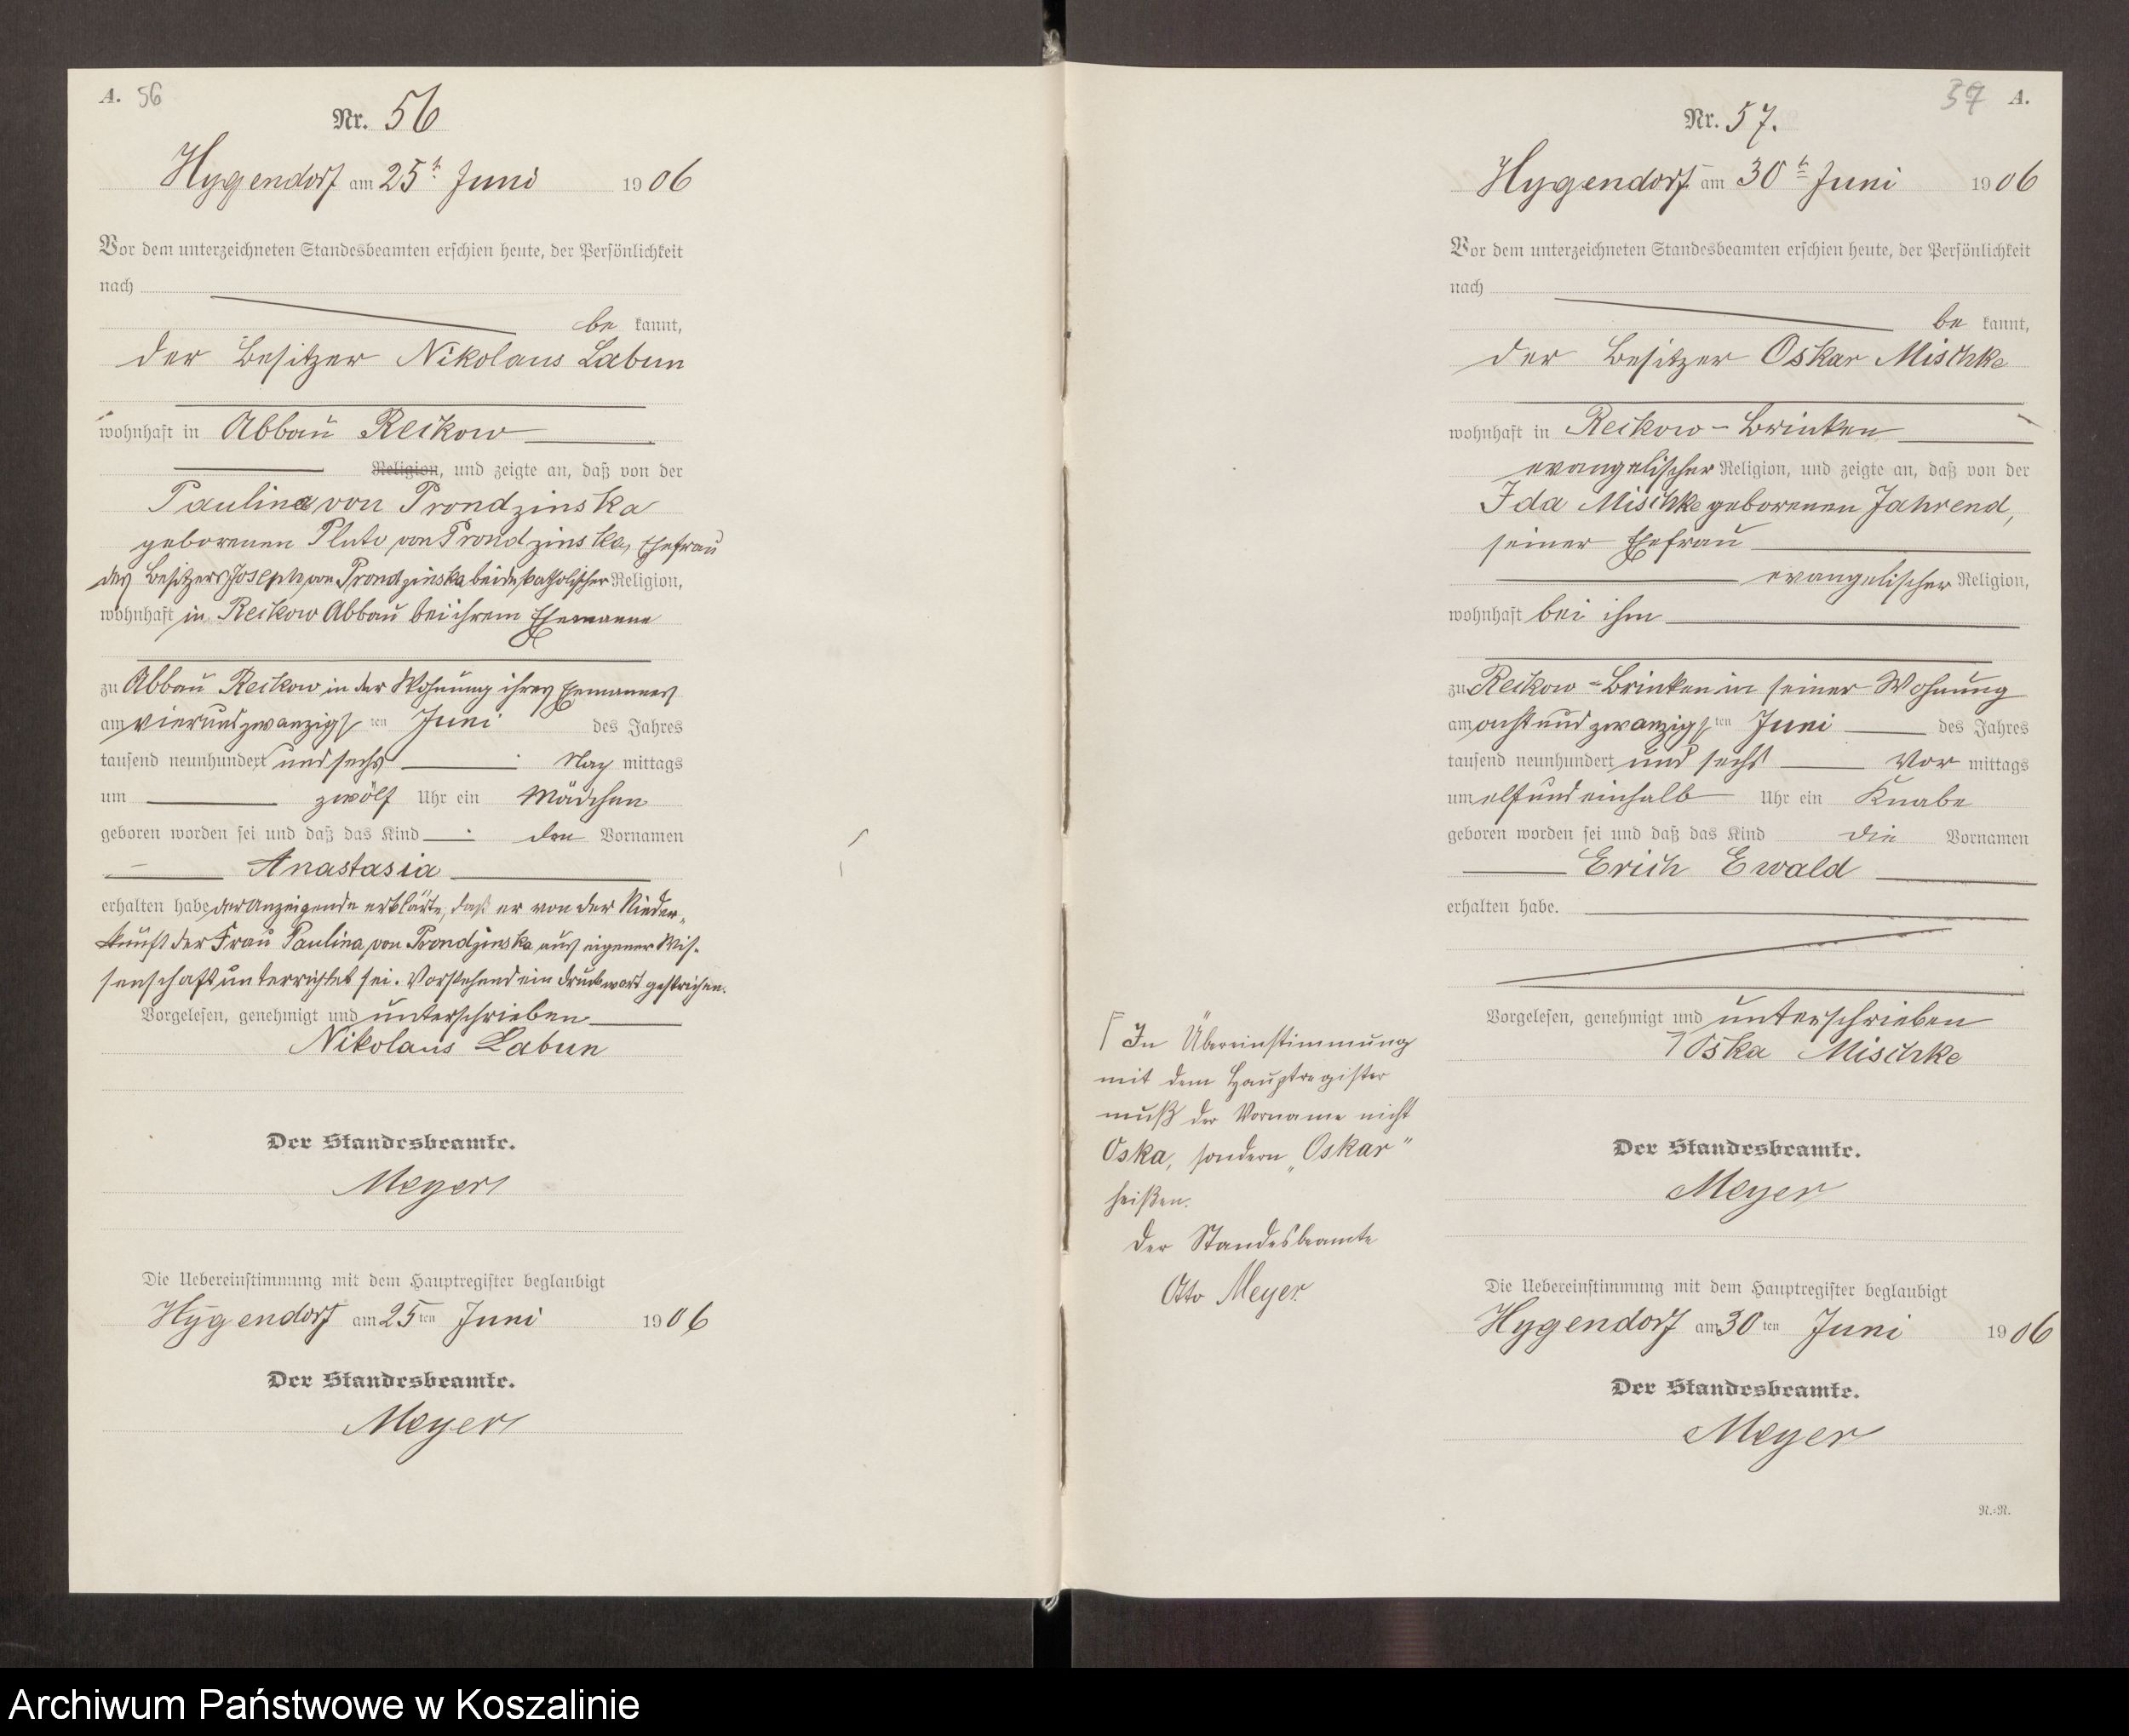 A. 56
Nr. 56
Hygendorf am 25ten Juni 1906
Vor dem unterzeichneten Standesbeamten erschien heute, der Persönlichkeit
nach
be kannt,
der Besitzer Nikolaus Labun
wohnhaft in Abbau Reckow
Religion, und zeigte an, daß von der
Paulina von Prondzinska
geborenen Pluto von Prondzinska, Ehefrau
des Besitzers Joseph von Prondzinska beide katholischer Religion,
wohnhaft in Reckow Abbau bei ihrem Ehemanne
zu Abbau Reckow in der Wohnung ihres Ehemannes
am vierundzwanzigsten Juni des Jahres
tausend neunhundert und sechs Nach mittags
um zwölf Uhr ein Mädchen
geboren worden sei und daß das Kind den Vornamen
Anastasia
erhalten habe, der Anzeigende erklärte, daß er von der Nieder-
kunft der Frau Paulina von Prondzinska aus eigener Wis-
senschaft unterrichtet sei. Vorstehend ein Druckwort gestrichen.
Vorgelesen, genehmigt und unterschrieben
Nikolaus Labun
Der Standesbeamte.
Meyer
Die Uebereinstimmung mit dem Hauptregister beglaubigt
Hygendorf am 25ten Juni 1906
Der Standesbeamte.
Meyer
57 A.
Nr. 57.
Hygendorf am 30ten Juni 1906
Vor dem unterzeichneten Standesbeamten erschien heute, der Persönlichkeit
nach
be kannt,
der Besitzer Oskar Mischke
wohnhaft in Reckow-Brinken
evangelischer Religion, und zeigte an, daß von der
Ida Mischke geborenen Jahrend,
seiner Ehefrau
evangelischer Religion,
wohnhaft bei ihm
zu Reckow-Brinken in seiner Wohnung
am achtundzwanzigsten Juni des Jahres
tausend neunhundert und sechs Vor mittags
um elfundeinhalb Uhr ein Knabe
geboren worden sei und daß das Kind die Vornamen
Erich Ewald
erhalten habe.
Vorgelesen, genehmigt und unterschrieben
Oska Mischke
In Übereinstimmung
mit dem Hauptregister
muß der Vorname nicht
Oska, sondern „Oskar"
heißen.
Der Standesbeamte
Otto Meyer
Der Standesbeamte.
Meyer
Die Uebereinstimmung mit dem Hauptregister beglaubigt
Hygendorf am 30ten Juni 1906
Der Standesbeamte.
Meyer
N.-N.
Archiwum Państwowe w Koszalinie